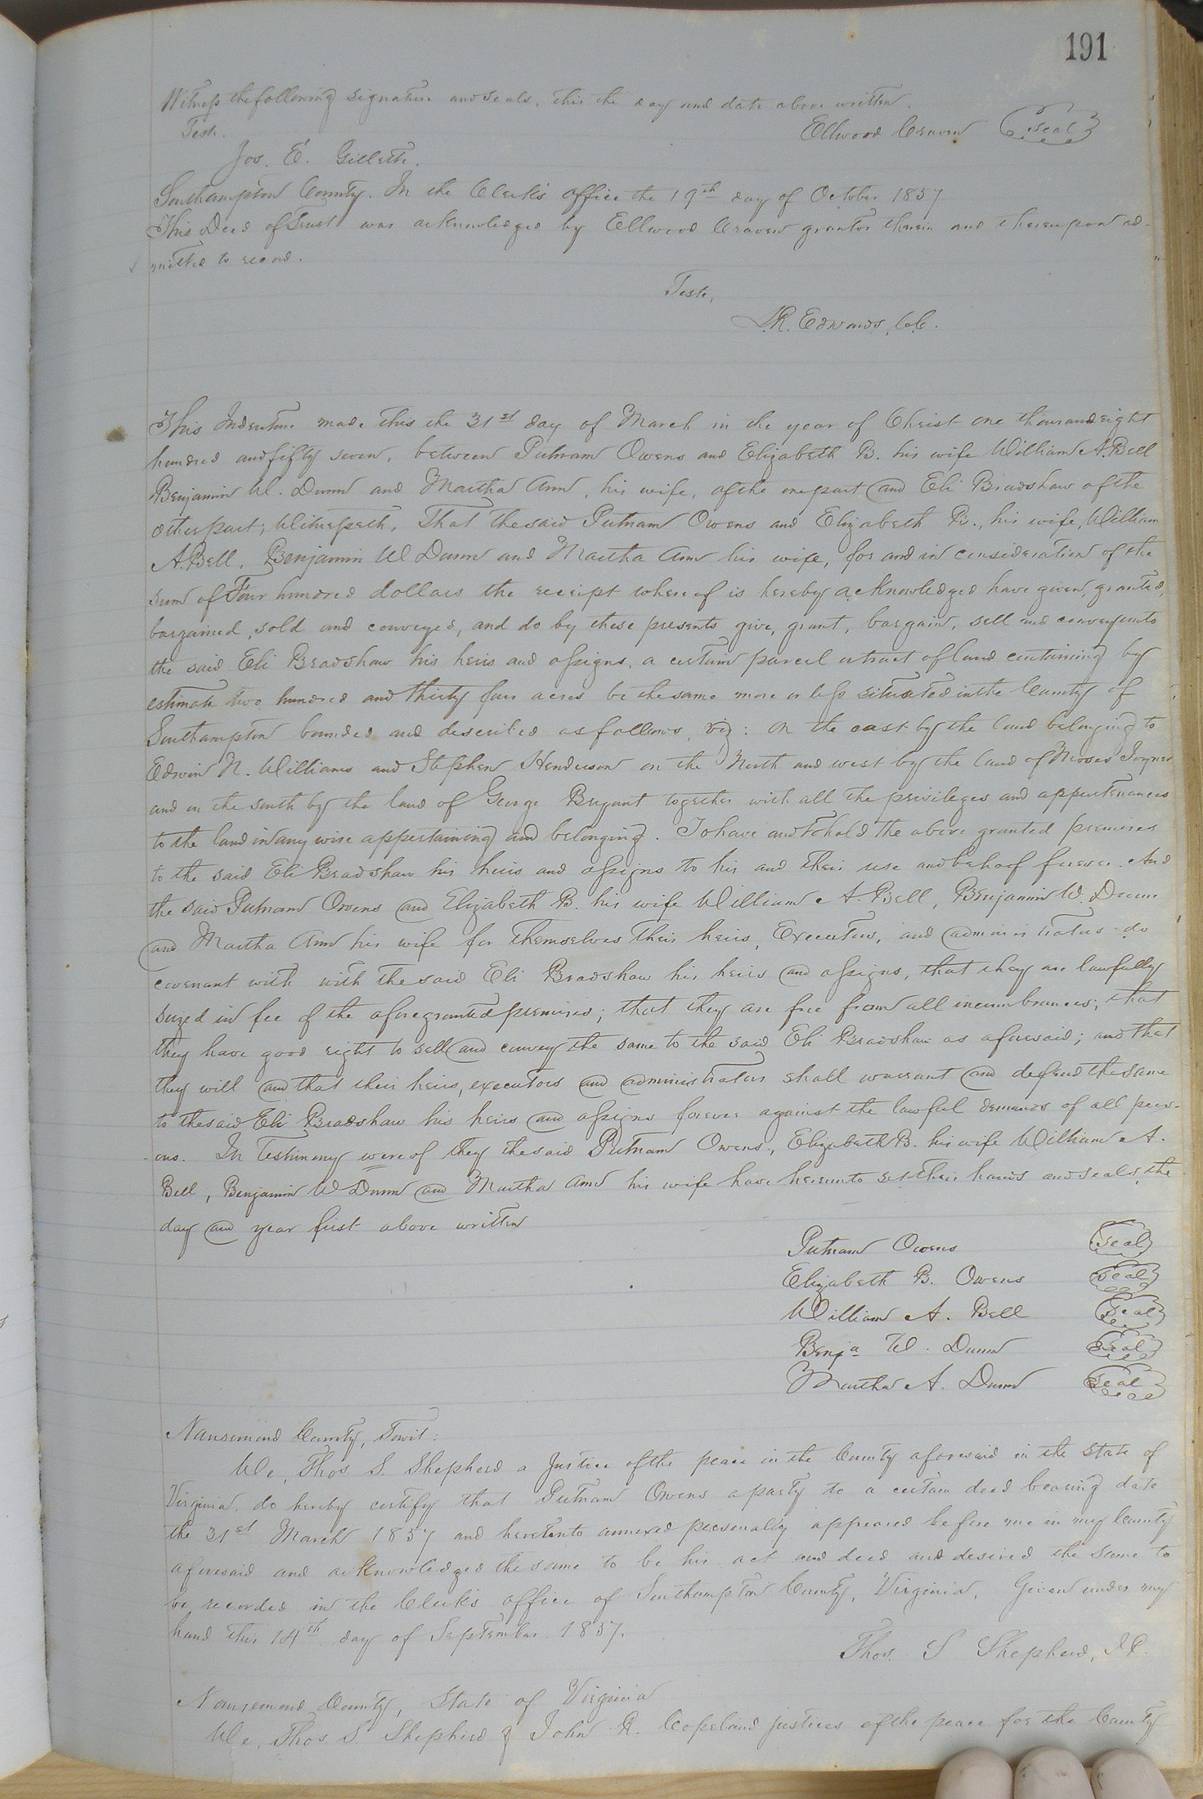 191
Witness the following signature and seals, this the day and date above written.
Teste.
Ellwood Craven (seal)
Jos. E. Gillette.
Southampton County. In the Clerk's office the 19th day of October 1857
This Deed of Trust was acknowledged by Ellwood Craven grantor therein and thereupon ad-
mitted to record.
Teste,
L.R. Edwards, C.C.
This Indenture made this the 31st day of March in the year of Christ one thousand eight
hundred and fifty seven, between Putnam Owens and Elizabeth B. his wife William A. Bell
Benjamin W. Dunn and Martha Ann, his wife, of the one part and Eli Bradshaw of the
other part; Witnesseth, That the said Putnam Owens and Elizabeth B., his wife, William
A. Bell, Benjamin W Dunn and Martha Ann his wife, for and in consideration of the
sum of Four hundred dollars the receipt where of is hereby acknowledged have given, granted,
bargained, sold and conveyed, and do by these presents give, grant, bargain, sell and convey unto
the said Eli Bradshaw his heirs and assigns, a certain parcel or tract of land containing by
estimate two hundred and thirty four acres be the same more or less situated in the County of
Southampton bounded and described as follows, viz: on the east by the land belonging to
Edwin N. Williams and Stephen Henderson on the North and west by the land of Moses Joyner
and on the south by the land of George Bryant together with all the privileges and appurtenances
to the land in any wise appertaining and belonging. To have and to hold the above granted premises
to the said Eli Bradshaw his heirs and assigns to his and their use and behoof forever. And
the said Putnam Owens and Elizabeth B. his wife William A. Bell, Benjamin W. Dunn
and Martha Ann his wife for themselves their heirs, Executors, and administrators do
covenant with with the said Eli Bradshaw his heirs and assigns, that they are lawfully
seized in fee of the afore granted premises; that they are free from all incumbrances; that
they have good right to sell and convey the same to the said Eli Bradshaw as aforesaid; and that
they will and that their heirs, executors and administrators shall warrant and defend the same
to the said Eli Bradshaw his heirs and assigns forever against the lawful demands of all pers-
ons. In Testimony were of they the said Putnam Owens, Elizabeth B. his wife William A.
Bell, Benjamin W Dunn and Martha Ann his wife have hereunto set their hands and seals, the
day and year first above written
Putnam Owens (seal)
Elizabeth B. Owens (seal)
William A. Bell (seal)
Benja W. Dunn (seal)
Martha A. Dunn (seal)
Nansemond County, Towit:
We, Thos S. Shepherd a Justice of the peace in the County aforesaid in the State of
Virginia, do hereby certify that Putnam Owens a party to a certain deed bearing date
the 31st March 1857 and hereunto annexed personally appeared before me in my County
aforesaid and acknowledged the same to be his act and deed and desired the same to
be recorded in the Clerk's office of Southampton County, Virginia. Given under my
hand this 14th day of September 1857.
Thos. S Shepherd, J.P.
Nansemond County, State of Virginia
We, Thos S Shepherd & John R. Copeland justices of the peace for the County